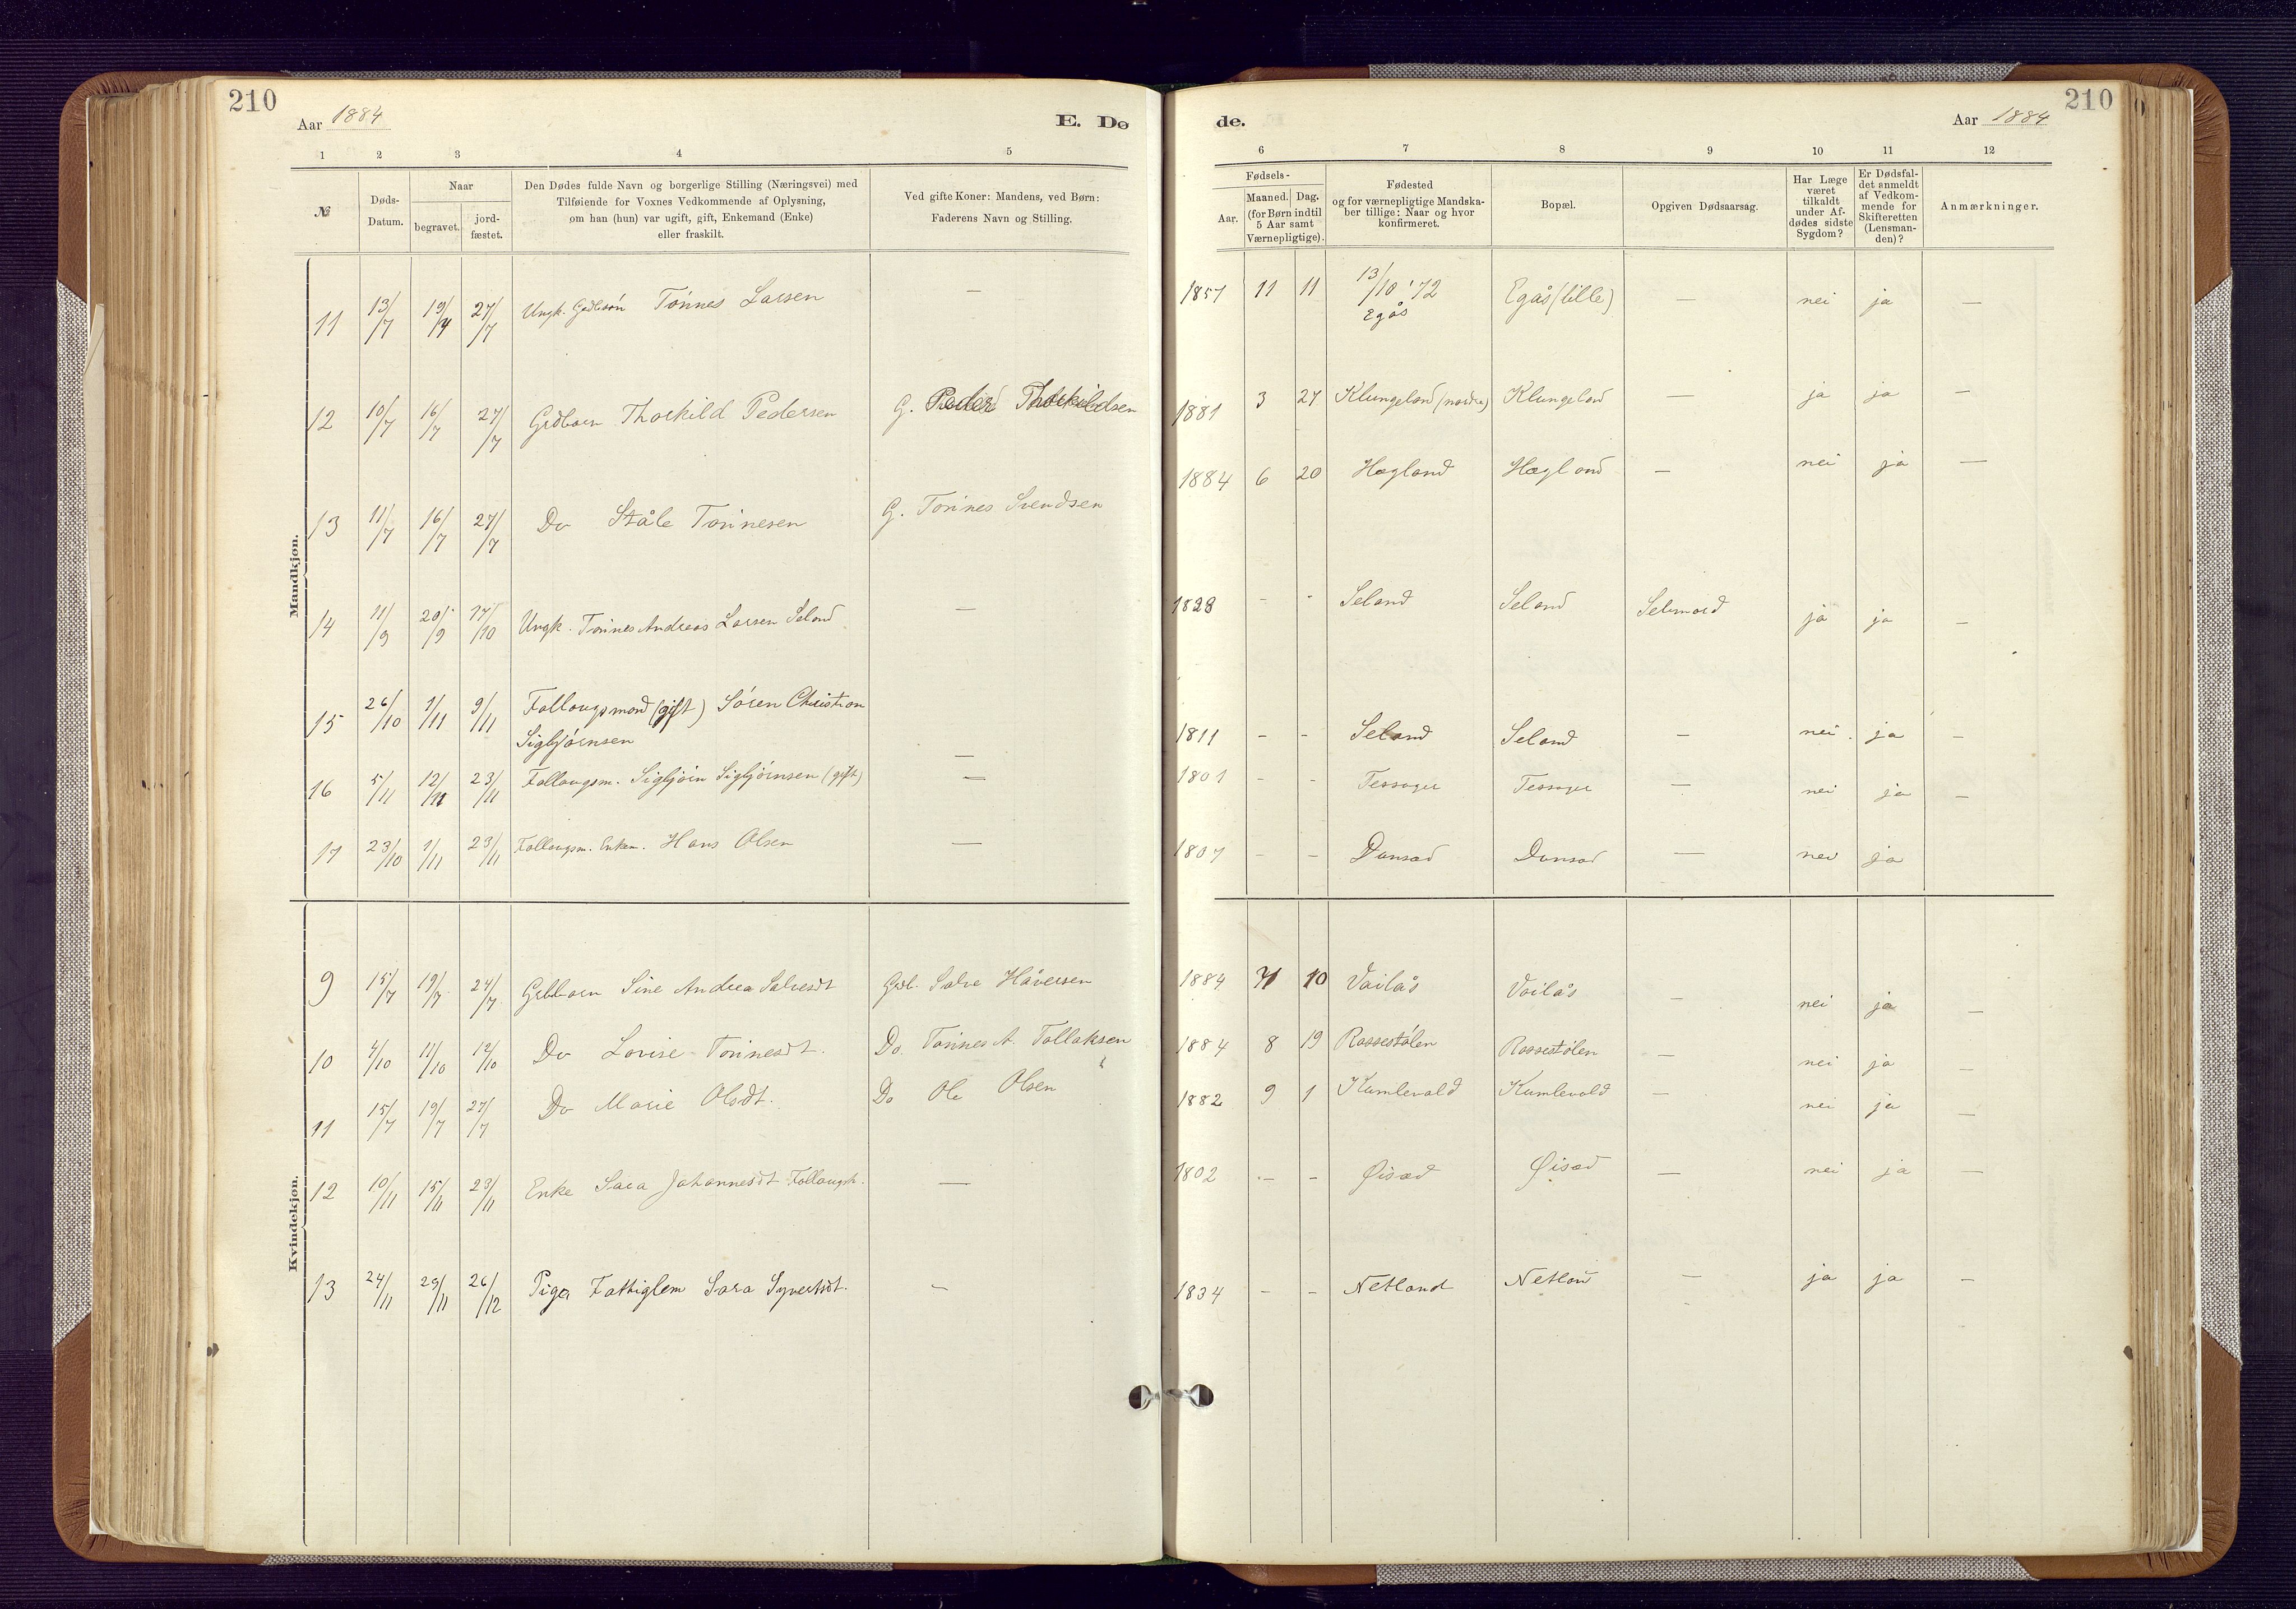 210
Aar 1884
E. Dø
1 2 3 4 5
№
Døds-
Datum.
Naar
begravet.
jord-
fæstet.
Den Dødes fulde Navn og borgerlige Stilling (Næringsvei) med
Tilføiende for Voxnes Vedkommende af Oplysning,
om han (hun) var ugift, gift, Enkemand (Enke)
eller fraskilt.
Ved gifte Koner: Mandens, ved Børn:
Faderens Navn og Stilling.
Mandkjøn.
11 13/7 19/7 27/7 Ungk. Gdbsøn Tønnes Larsen —
12 10/7 16/7 27/7 Grdbarn Thorkild Pedersen G. Peder Thorkildsen
13 11/7 16/7 27/7 Do Ståle Tønnesen G. Tønnes Svendsen
14 11/9 20/9 17/10 Ungk. Tønnes Andreas Larsen Seland —
15 26/10 1/11 9/11 Follougsmand (gift) Søren Christian
Sigbjørnsen —
16 5/11 12/11 23/11 Follougsm. Sigbjørn Sigbjørnsen (gift) —
17 23/10 1/11 23/11 Follougsm. Enkem. Hans Olsen —
Kvindekjøn.
9 15/7 19/7 27/7 Grdbarn Sine Andrea Salvesdt Grdb. Salve Håversen
10 4/10 11/10 12/10 Do Lovise Tønnesdt. Do. Tønnes A. Tollaksen
11 15/7 19/7 27/7 Do Marie Olsdt. Do Ole Olsen
12 10/11 15/11 23/11 Enke Sara Johannesdt Follougk. —
13 24/11 29/11 26/12 Pige Fattiglem Sara Syvertsdt. —
210
de.
Aar 1884
6 7 8 9 10 11 12
Fødsels-
Aar.
Maaned. Dag.
(for Børn indtil
5 Aar samt
Værnepligtige).
Fødested
og for værnepligtige Mandska-
ber tillige: Naar og hvor
konfirmeret.
Bopæl.
Opgiven Dødsaarsag.
Har Læge
været
tilkaldt
under Af-
dødes sidste
Sygdom?
Er Dødsfal-
det anmeldt
af Vedkom-
mende for
Skifteretten
(Lensman-
den)?
Anmærkninger.
1857 11 11 13/10 '72
Egås Egås (lille) — nei ja —
1881 3 27 Klungeland (nordre) Klungeland — ja ja —
1884 6 20 Hægland Hægland — nei ja —
1828 - - Seland Seland Selvmord ja ja —
1811 - - Seland Seland — nei. ja —
1801 - - Tessager Tessager — nei ja —
1807 - - Dunsæd Dunsæd — nei ja
1884 10 Vailås Vailås — nei ja —
1884 8 19 Rossestølen Rossestølen — nei ja —
1882 9 1 Kumlevold Kumlevold — nei ja —
1802 - - Øisæd Øisæd — nei ja —
1834 - - Netland Netland — ja ja —